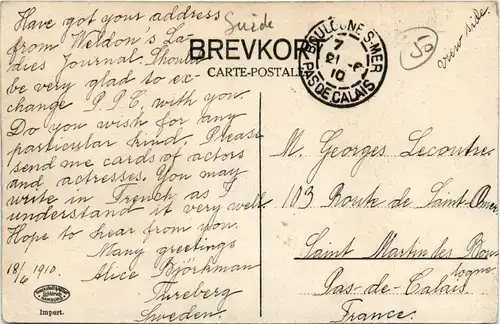 Have got your address
from Weldon's La-
dies Journal. Should
be very glad to ex-
change P.P.C. with you.
Do you wish for any
particular kind. Please
send me cards of actors
and actresses. You may
write in French as I
understand it very well.
Hope to hear from you.
Many greetings
18/6 1910. Alice Björkman
Tureberg
Sweden.
Import.
Suède
BREVKORT
CARTE-POSTALE
BOULOGNE S-MER
7
21 -6
10
PAS DE CALAIS
50
view side.
M. Georges Lecoutre
103 Route de Saint-Omer
Saint Martin les Bou
logne
Pas-de-Calais
France.